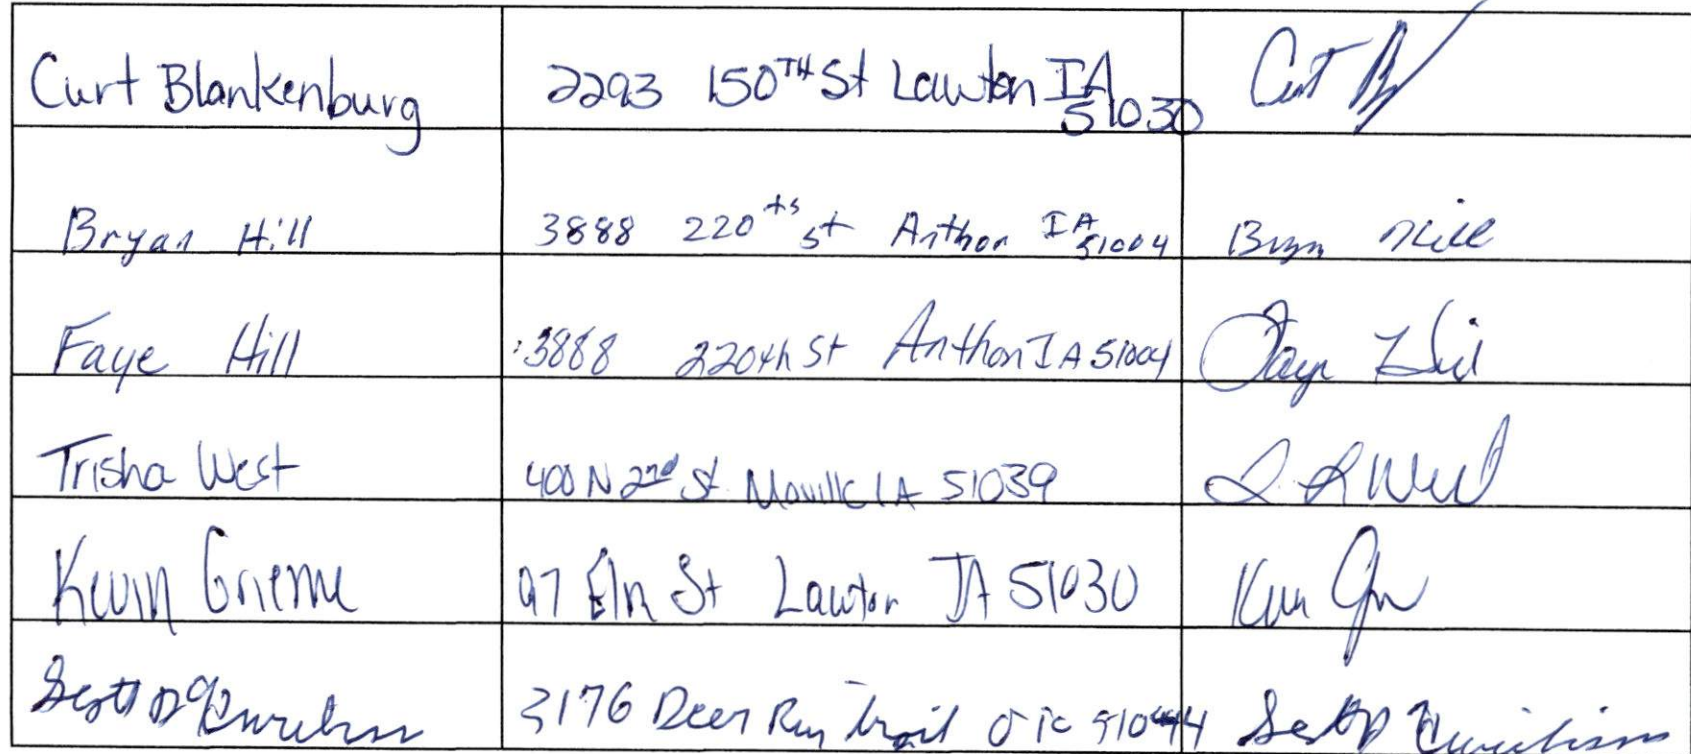 Curt Blankenburg 2293 150TH St Lawton IA 51030 Curt
Bryan Hill 3888 220th St Anthon IA 51004 Bryan Hill
Faye Hill 3888 220th St Anthon IA 51004 Faye Hill
Trisha West 400 N 2nd St. Moville IA 51039 West
Kevin Grieme 97 Elm St Lawton IA 51030 Kevin
Scott D 3176 Deer Run Trail Oto 51044 Scott D